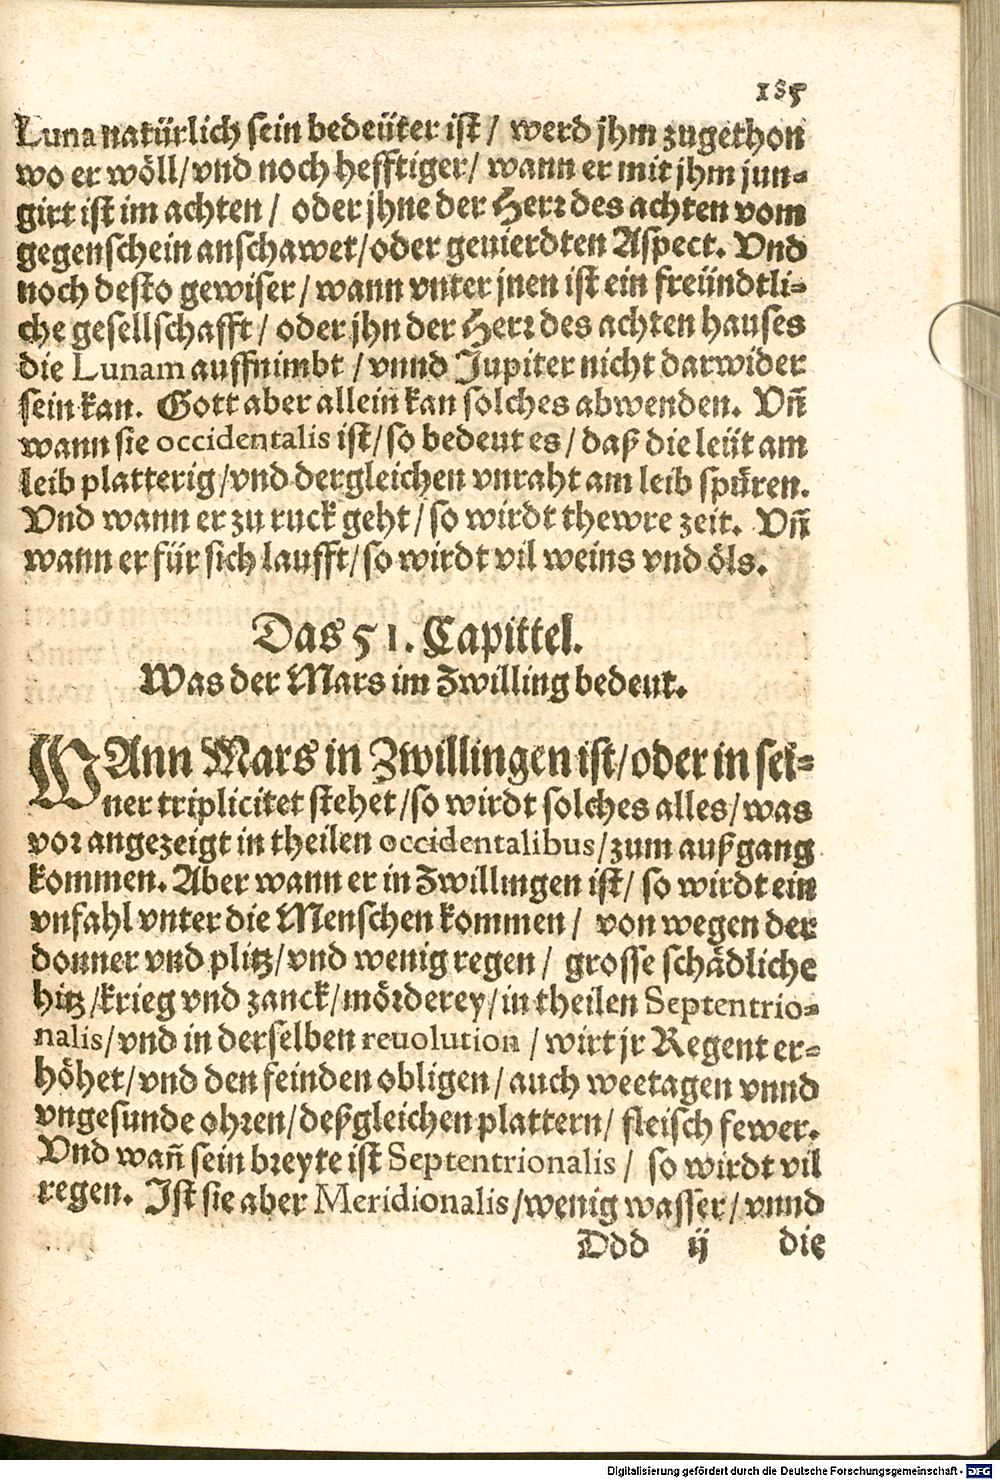 185
Luna natürlich sein bedeüter ist / werd jhm zugethon
wo er wöll/vnd noch hefftiger/ wann er mit jhm jun⸗
girt ist im achten / oder jhne der Herr des achten vom
gegenschein anschawet/oder geuierdten Aspect. Vnd
noch desto gewiser/wann vnter jnen ist ein freündtli⸗
che gesellschafft/ oder jhn der Herr des achten hauses
die Lunam auffnimbt /vnnd Jupiter nicht darwider
sein kan. Gott aber allein kan solches abwenden. Vñ
wann sie occidentalis ist/so bedeut es/daß die leüt am
leib platterig/vnd dergleichen vnraht am leib spüren.
Vnd wann er zu ruck geht/so wirdt thewre zeit. Vñ
wann er für sich laufft/so wirdt vil weins vnd öls.
Das 51. Capittel.
Was der Mars im Zwilling bedeut.
WAnn Mars in Zwillingen ist/oder in sei⸗
ner triplicitet stehet/so wirdt solches alles/was
vor angezeigt in theilen occidentalibus/zum außgang
kommen. Aber wann er in Zwillingen ist/ so wirdt ein
vnfahl vnter die Menschen kommen/ von wegen der
donner vnd plitz/vnd wenig regen/ grosse schädliche
hitz/krieg vnd zanck/mörderey/in theilen Septentrio⸗
nalis/vnd in derselben reuolution /wirt jr Regent er⸗
höhet/vnd den feinden obligen/auch weetagen vnnd
vngesunde ohren/deßgleichen plattern/ fleisch fewer.
Vnd wañ sein breyte ist Septentrionalis/ so wirdt vil
regen. Ist sie aber Meridionalis/wenig wasser/vnnd
Ddd ij die
Digitalisierung gefördert durch die Deutsche Forschungsgemeinschaft - DFG